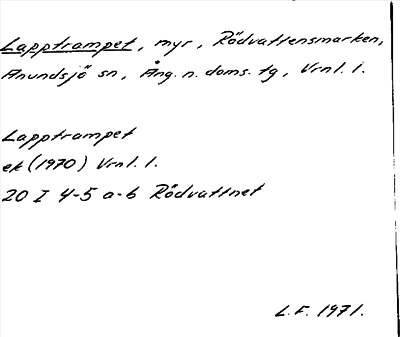 Lapptrampet, myr, Rödvattensmarken,
Anundsjö sn, Ång. n. doms. tg, Vrnl. l.
Lapptrampet
ek (1970) Vrnl. l.
20 I 4-5 a-b Rödvattnet
L.F. 1971.